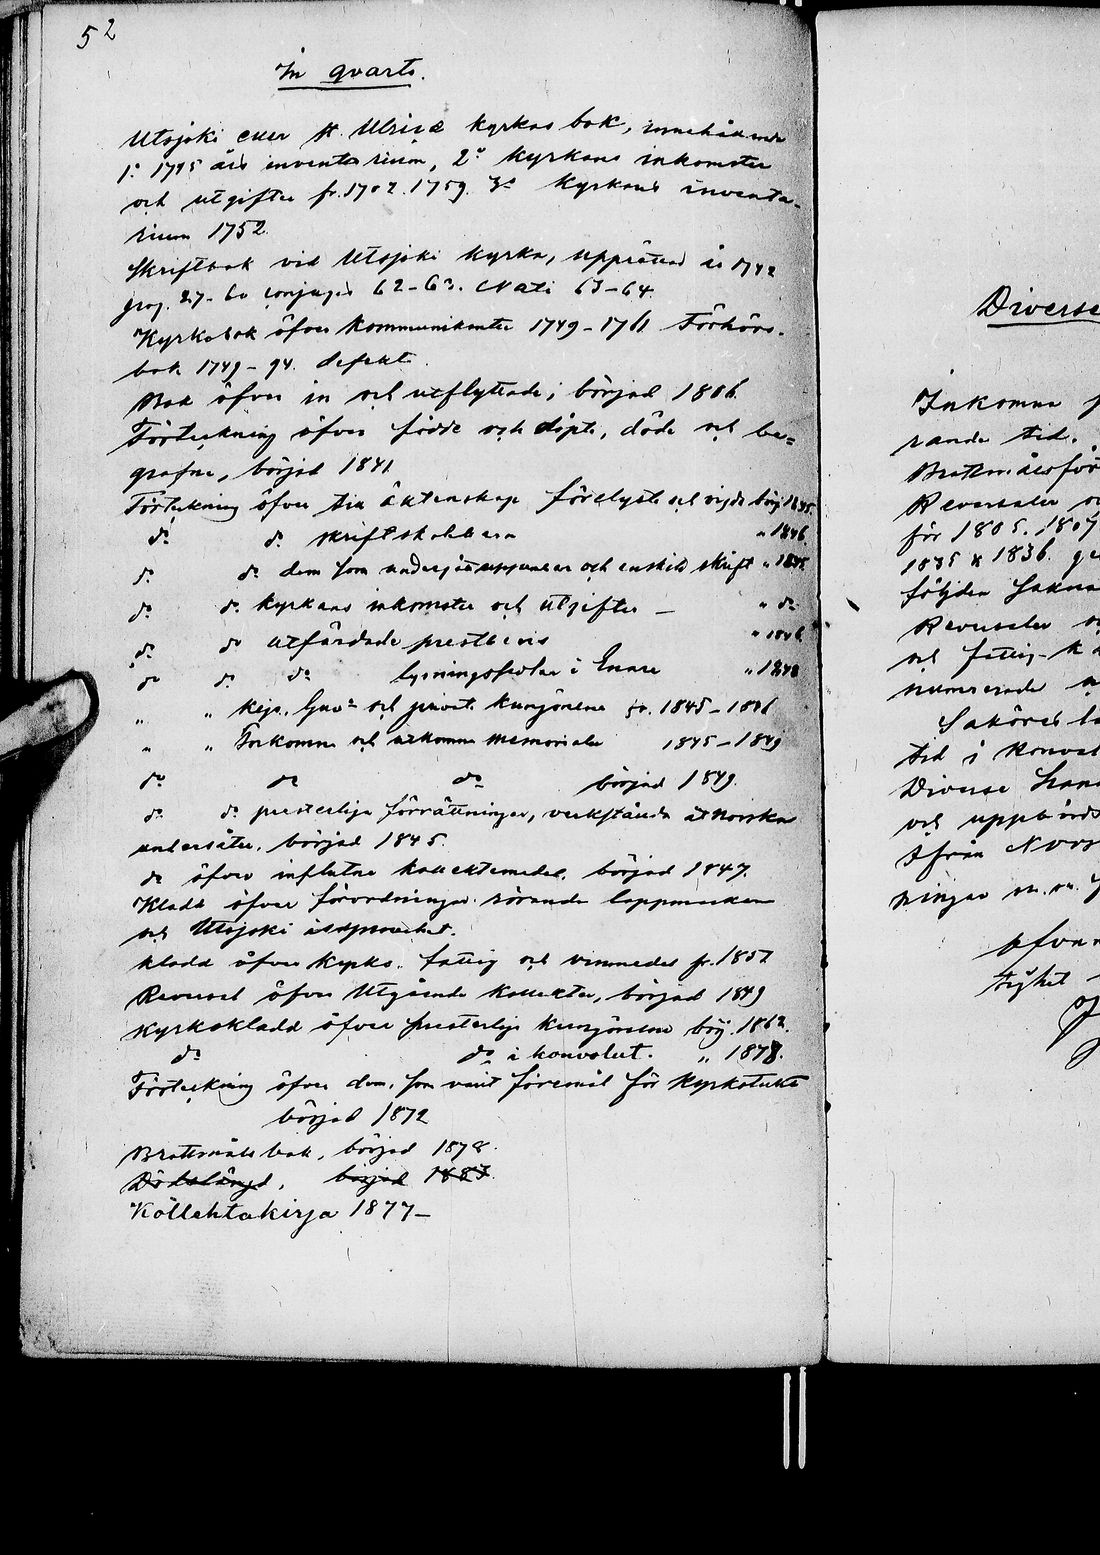 52
In qvarto.
Utsjoki eller St. Ulricæ kyrkas bok, innehållande
1:o 1745 års inventarium, 2:o Kyrkans inkomster
och utgifter fr. 1702. 1759. 3:o Kyrkans inventa-
rium 1752.
Skriftbok vid Utsjoki kyrka, upprättad år 1742
pag. 27-60 conjuges 62-63. Nati 63-64.
Kyrkobok öfver kommunikanter 1749-1761 Förhörs-
bok 1749-94. defekt.
Bok öfver in och utflyttade, börjad 1806.
Förteckning öfver födde och döpte, döde och be-
grafne, börjad 1841
Förteckning öfver till äktenskap förelyste och vigde börj. 1845.
d:o d:o skriftskolbarn " 1846.
d:o d:o dem som undergått uppenbar och enskild skrift "
d:o d:o kyrkans inkomster och utgifter - " d:o
d:o d:o utfärdade prestbevis " 1846
d:o d:o d:o lysningssedlar i Enare " 1848
" " kejs. Guv:s och privat. kungörelse fr. 1845-
" " Inkomne och utkomne memorialer 1845-1849
d:o d:o d:o börjad 1849.
d:o d:o presterliga förrättningar, verkstälda åt Norska
undersåter, börjad 1845.
d:o öfver influtne kollektmedel, börjad 1847.
Kladd öfver förordningar rörande lappmarken
och Utsjoki
Kladd öfver kyrko- fattig och vinmedel fr. 1857
Reversal öfver Utgående kollekter, börjad 1849
Kyrkokladd öfver presterliga kungörelser börj. 1862.
d:o d:o i konvolut. " 1878.
Förteckning öfver dem, som varit föremål för Kyrkotukt
börjad 1872
Brottmålsbok, börjad 1878.
Dödslängd, börjad 1883.
Kollehtakirja 1877-
Diverse
Inkomna
rande tid.
Brottmålsför
Reversaler
för 1805. 1807
1835 & 1836.
följden
Reversaler
och fattig-
numrerade
Sakören
tid i konvol
Diverse
och uppbörds
ifrån Norr
ningar m.m.